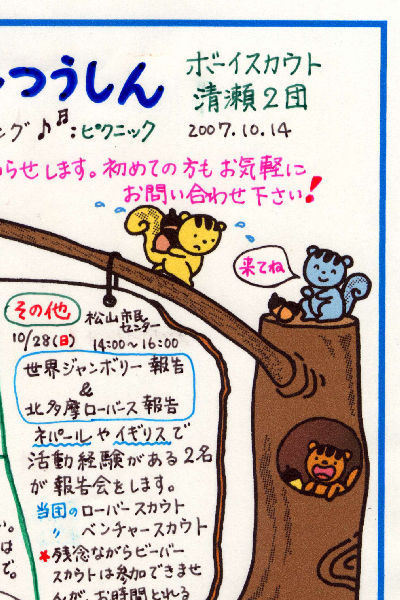 つうしん
ボーイスカウト
清瀬2団
ング♪♬:ピクニック
2007.10.14
らせします。初めての方もお気軽に
お問い合わせ下さい!
来てね
その他
松山市民
センター
10/28(日)
14:00〜16:00
世界ジャンボリー報告
&
北多摩ローバース報告
ネパールやイギリスで
活動経験がある2名
が報告会をします。
当団のローバースカウト
〃 ベンチャースカウト
★残念ながらビーバー
スカウトは参加できませ
んが、お時間とれる
い。
は
で。